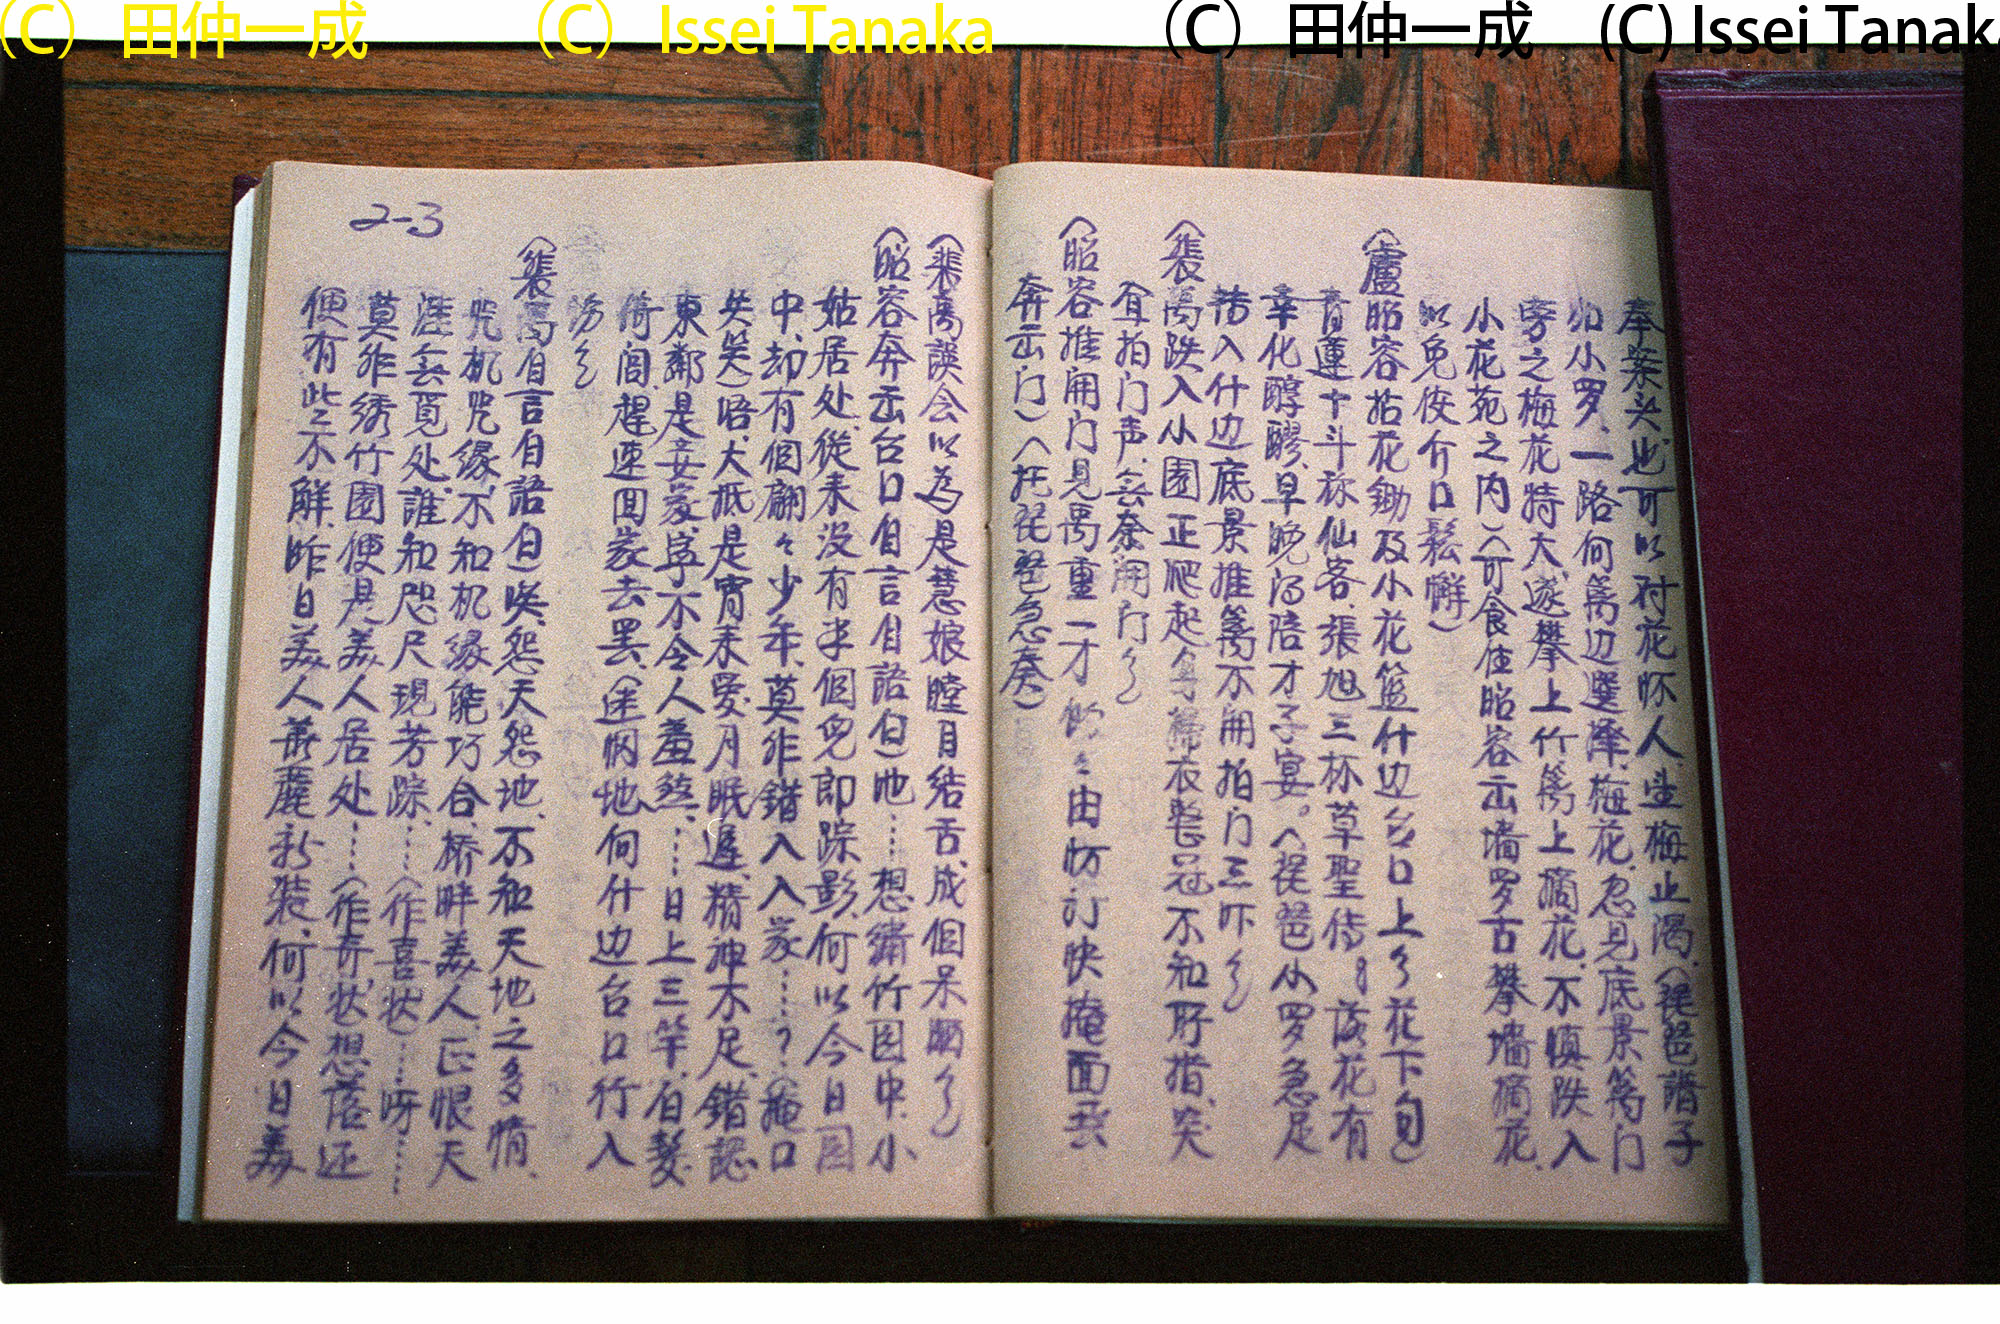 (C) 田仲一成 (C) Issei Tanaka (C) 田仲一成 (C) Issei Tanaka
奉案头，也可以对花怀人，望梅止渴，（琵琶譜子
如小罗，一路向篱边選擇，梅花，忽見底景篱门
旁之梅花特大，遂攀上竹篱上摘花，不慎跌入
小花苑之内）（可食住昭容云墙罗古攀墙摘花，
以免俊介口鬆懈）
（盧昭容拈花鋤及小花篮什边台口上々花下句）
青蓮十斗称仙客，張旭三杯草聖传。該花有
幸化醇醪，早晚得陪才子宴。（琵琶小罗急足
樽入什边底景推篱不開拍门三吓々
（裴禹跌入小園正爬起身掃衣整冠不知所措，突
宜拍门声，無奈開门々
（昭容推開门見禹重一才 由怀訂快掩面云
奔云门）（托琵琶急奏）
（裴禹誤会以為是慧娘瞠目结舌，成個呆晒々
（昭容奔云台口自言自語白）吔……想綉竹园中，小
姑居处，從来没有半個兜郎踪影，何以今日园
中，却有個翩々少年，莫非錯入人家……？（掩口
失笑）唔，大抵是宵来爱月眠遲，精神不足，錯認
東鄰，是妄爱，寧不令人羞煞，……日上三竿，有髮
倚閭，趕速回家去罢（途惘地向什边台口行入
汤々
2-3
（裴禹自言自語白）唉，怨天怨地，不知天地之多情，
咒机咒缘，不知机缘能巧合，桥畔美人，正恨天
涯無覓处，誰知咫尺現芳踪，……（作喜状）……呀……
莫非绣竹園便是美人居处……（作奇状，想落还
便有些不解，昨日美人華麗新装，何以今日美